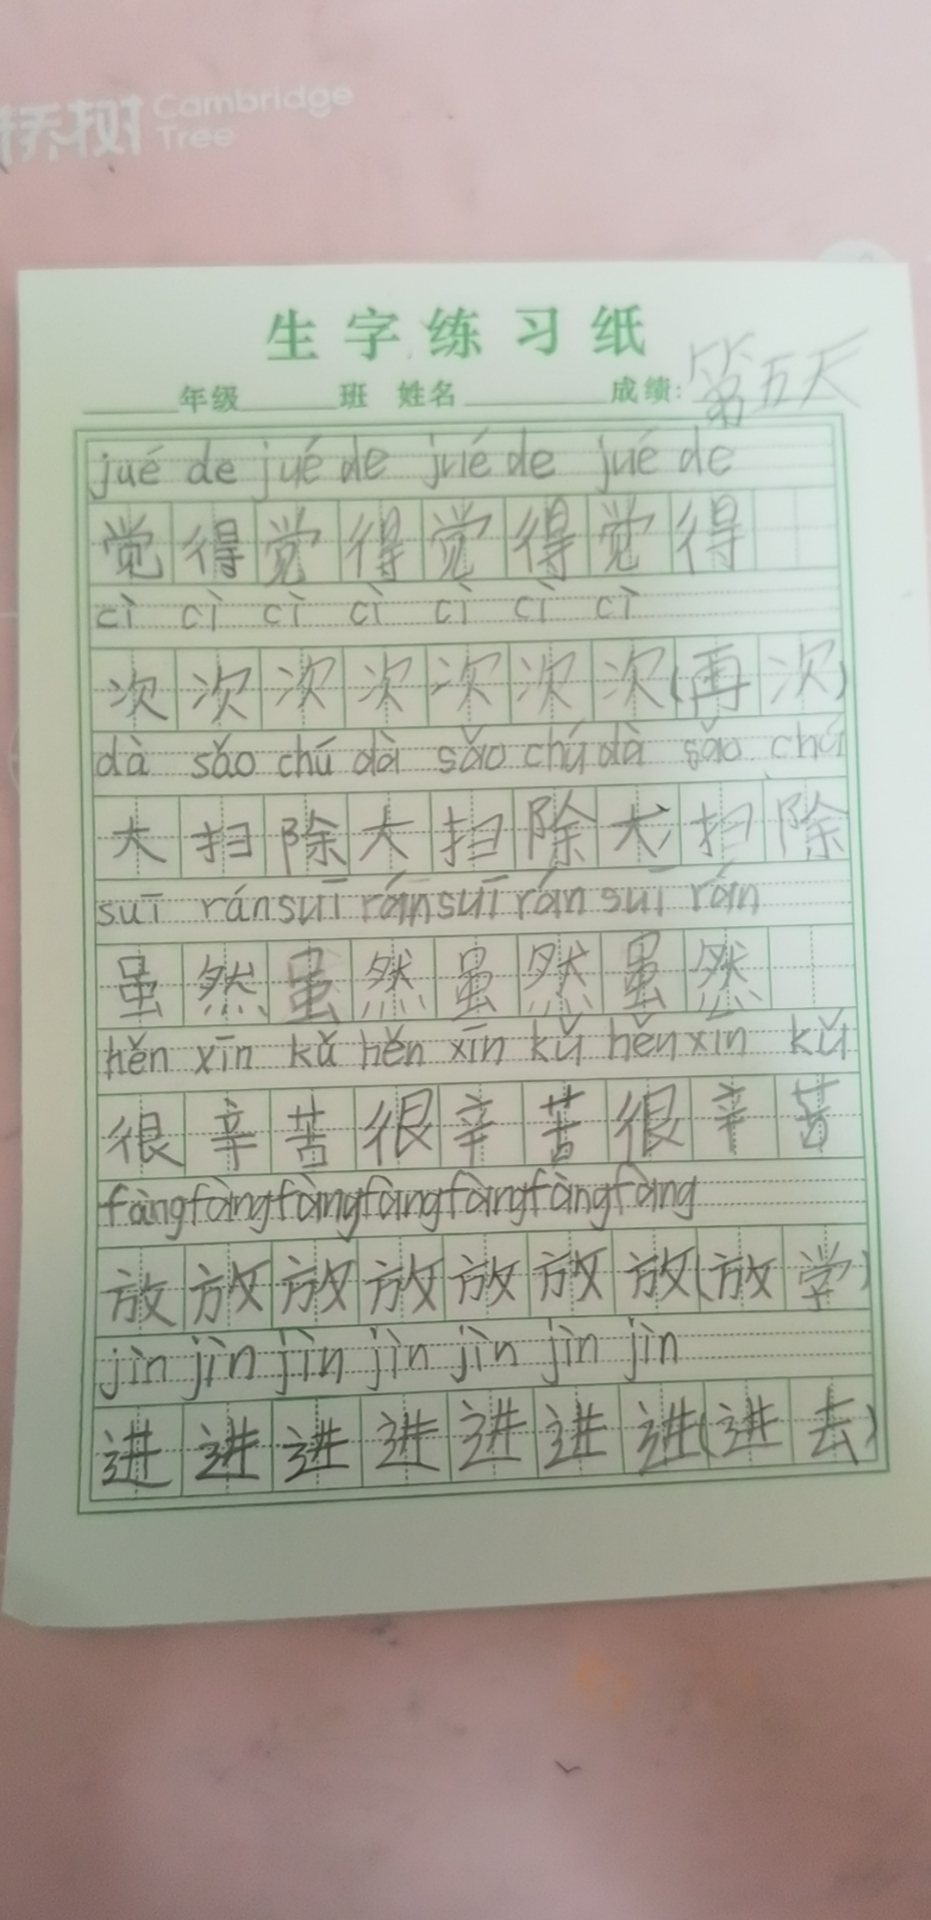 桥树 Cambridge
Tree
生字练习纸
年级 班 姓名 成绩: 第五天
jué de jué de jué de jué de
觉得觉得觉得觉得
cì cì cì cì cì cì cì
次次次次次次次(再次)
dà sǎo chú dà sǎo chú dà sǎo chú
大扫除大扫除大扫除
suī rán suī rán suī rán suī rán
虽然虽然虽然虽然
hěn xīn kǔ hěn xīn kǔ hěn xīn kǔ
很辛苦很辛苦很辛苦
fàng fàng fàng fàng fàng fàng fàng
放放放放放放放(放学)
jìn jìn jìn jìn jìn jìn jìn
进进进进进进进(进去)